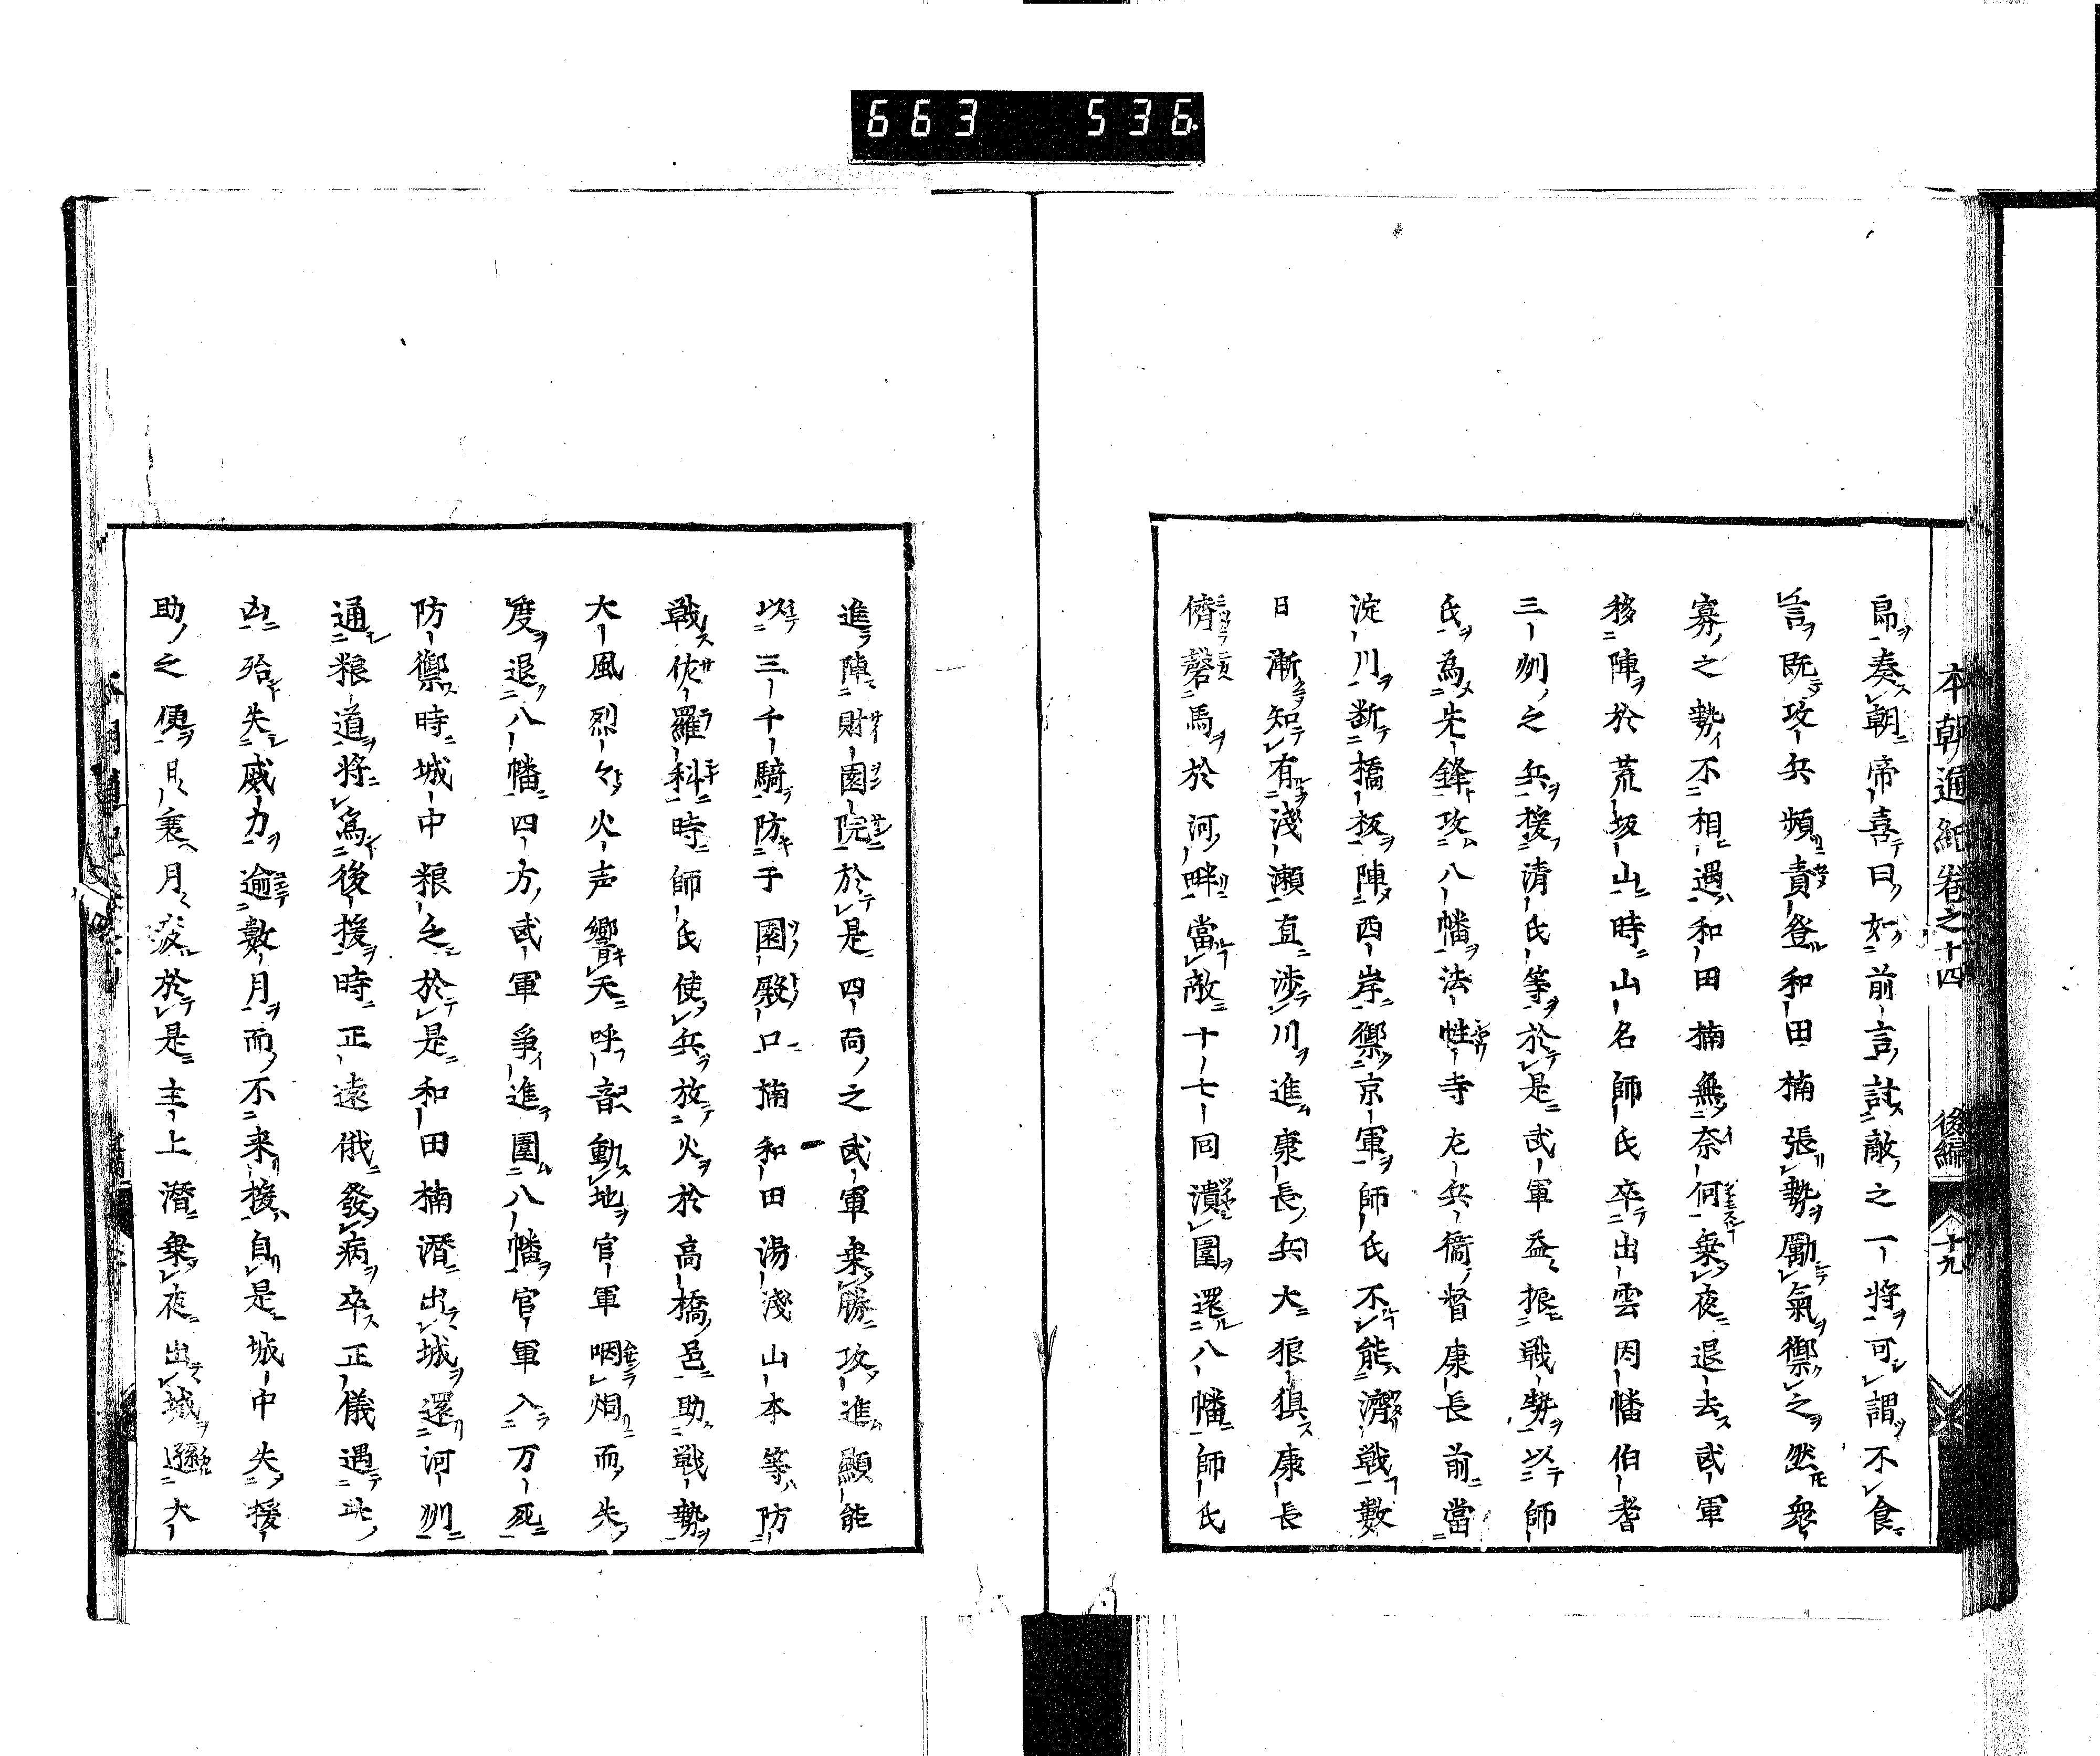 663 536
本朝通紀卷之十四 後編 十九
帛奏朝帝喜曰如前言討敵之一将可謂不食
言既攻兵頻責登和田楠張勢勵氣禦之然衆
寡之勢不相遇和田楠無奈何乗夜退去武軍
移陣於荒坂山時山名師氏卒出雲因幡伯耆
三州之兵援清氏等於是武軍益振戰勢以師
氏為先鋒攻八幡法性寺左兵衛督康長前當
淀川断橋板陣西岸禦京軍師氏不能濟戦數
日漸知有淺瀬直渉川進康長兵大狼狽康長
儕磬馬於河畔當敵十七回潰圍還八幡師氏
進陣財園院於是四面之武軍乗勝攻進顯能
以三千騎防于園殿口楠和田湯淺山本等防
戰佐羅科時師氏使兵放火於高橋邑助戦勢
大風烈々火声響天呼音動地官軍咽烟而失
度退八幡四方武軍爭進圍八幡官軍入万死
防禦時城中粮乏於是和田楠潜出城還河州
通粮道将為後援時正遠俄發病卒正儀遇此
凶殆失威力逾數月而不来援自是城中失援
助之便日衰月衰於是主上潜乗夜出城遜大